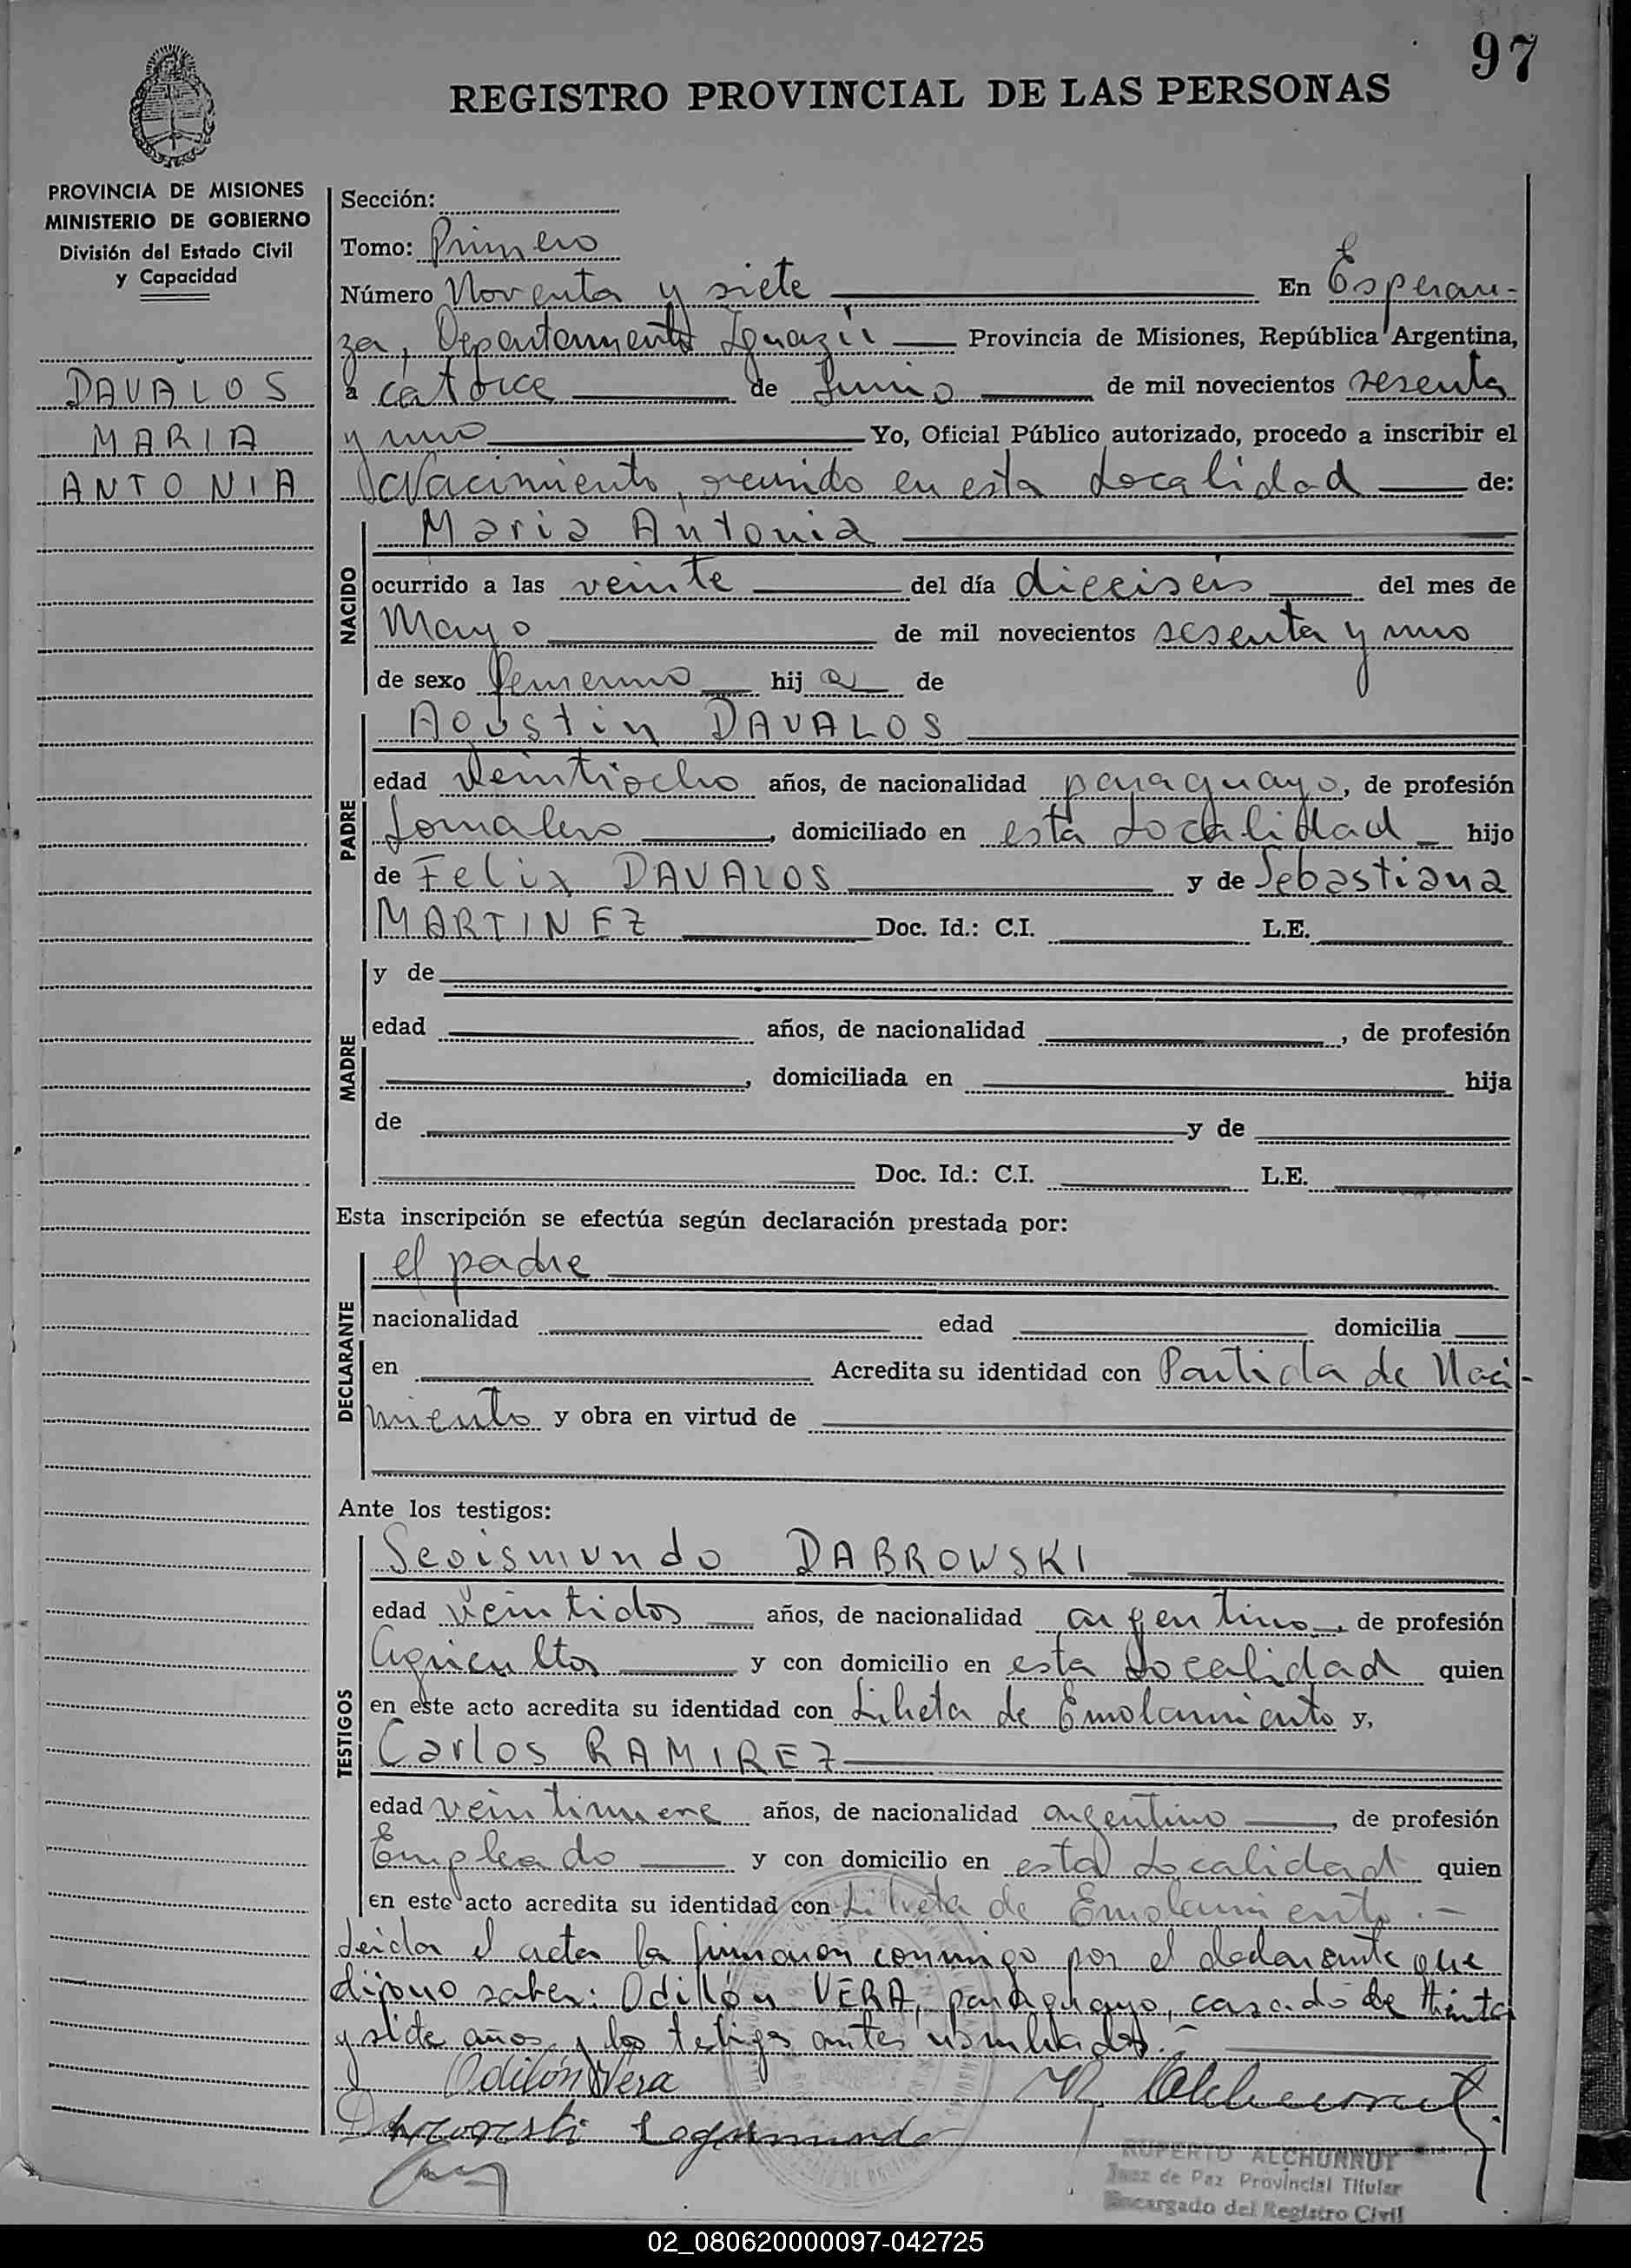 97
REGISTRO PROVINCIAL DE LAS PERSONAS
PROVINCIA DE MISIONES
MINISTERIO DE GOBIERNO
División del Estado Civil
y Capacidad
DAVALOS
MARIA
ANTONIA
Sección:
Tomo: Primero
Número Noventa y siete En Esperan-
za, Departamento Iguazú Provincia de Misiones, República Argentina,
a catorce de Junio de mil novecientos sesenta
y uno Yo, Oficial Público autorizado, procedo a inscribir el
Nacimiento, en esta Localidad de:
Maria Antonia
NACIDO
ocurrido a las veinte del día dieciseis del mes de
Mayo de mil novecientos sesenta y uno
de sexo femenino hij a de
Agustin DAVALOS
PADRE
edad veintiocho años, de nacionalidad paraguayo, de profesión
Jornalero, domiciliado en esta Localidad hijo
de Felix DAVALOS y de Sebastiana
MARTINEZ Doc. Id.: C.I. L.E.
MADRE
y de
edad años, de nacionalidad , de profesión
, domiciliada en hija
de y de
Doc. Id.: C.I. L.E.
Esta inscripción se efectúa según declaración prestada por:
el padre
DECLARANTE
nacionalidad edad domicilia
en Acredita su identidad con Partida de Naci-
miento y obra en virtud de
Ante los testigos:
Segismundo DABROWSKI
TESTIGOS
edad veintidos años, de nacionalidad argentino, de profesión
Agricultor y con domicilio en esta Localidad quien
en este acto acredita su identidad con Libreta de Enrolamiento y,
Carlos RAMIREZ
edad veintinueve años, de nacionalidad argentino, de profesión
Empleado y con domicilio en esta Localidad quien
en este acto acredita su identidad con Libreta de Enrolamiento.-
Leida el acta la firmaron conmigo por el declarante que
dijo no saber: Odilón VERA, paraguayo, casado de treinta
y siete años y los testigos antes nombrados.-
Odilón Vera
Segismundo
RUPERTO ALCHURRUT
Juez de Paz Provincial Titular
Encargado del Registro Civil
02_080620000097-042725